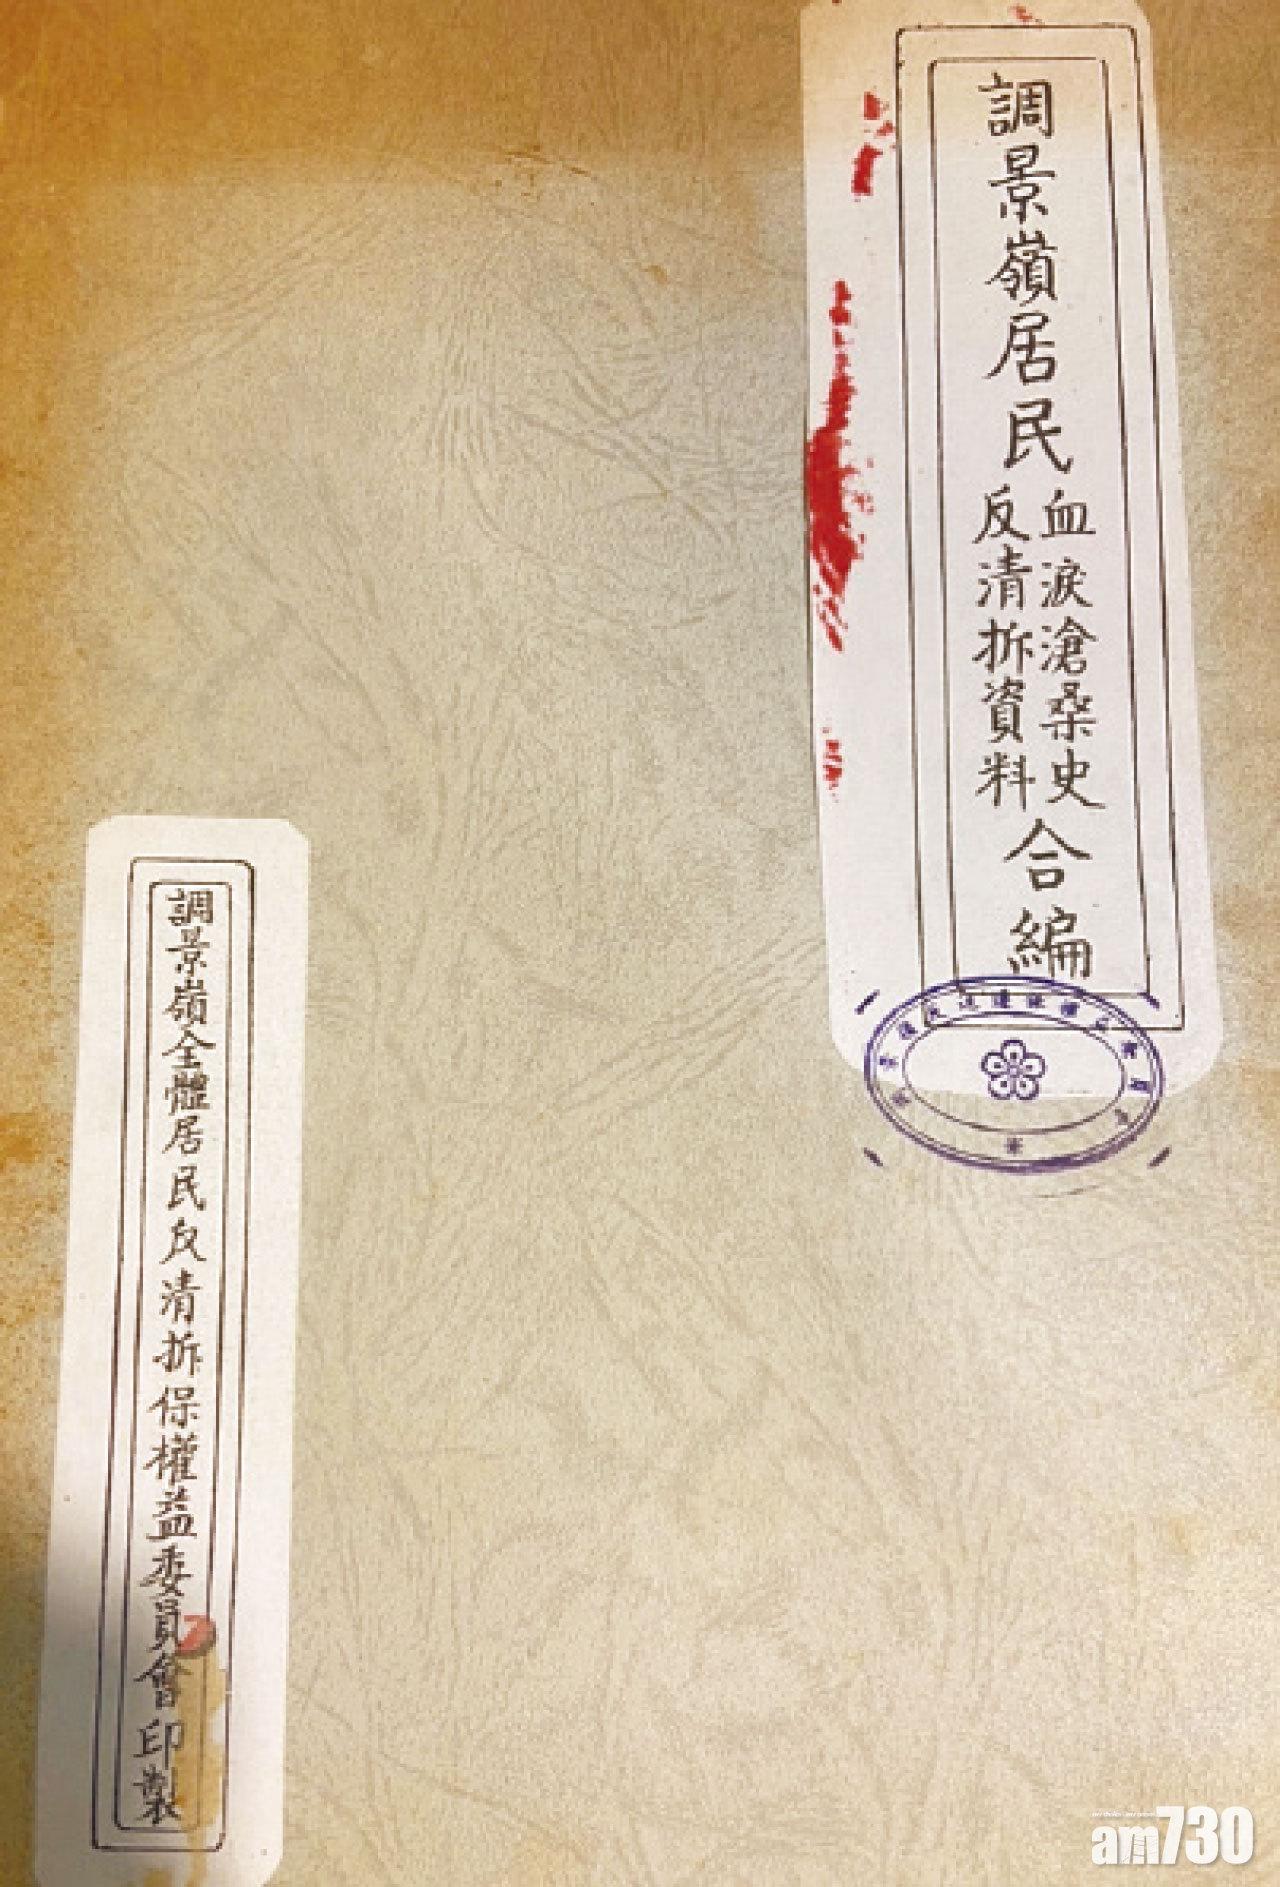 調景嶺居民
血淚滄桑史
反清拆資料
合編
調景嶺全體居民反清拆保權益委員會印製
am730